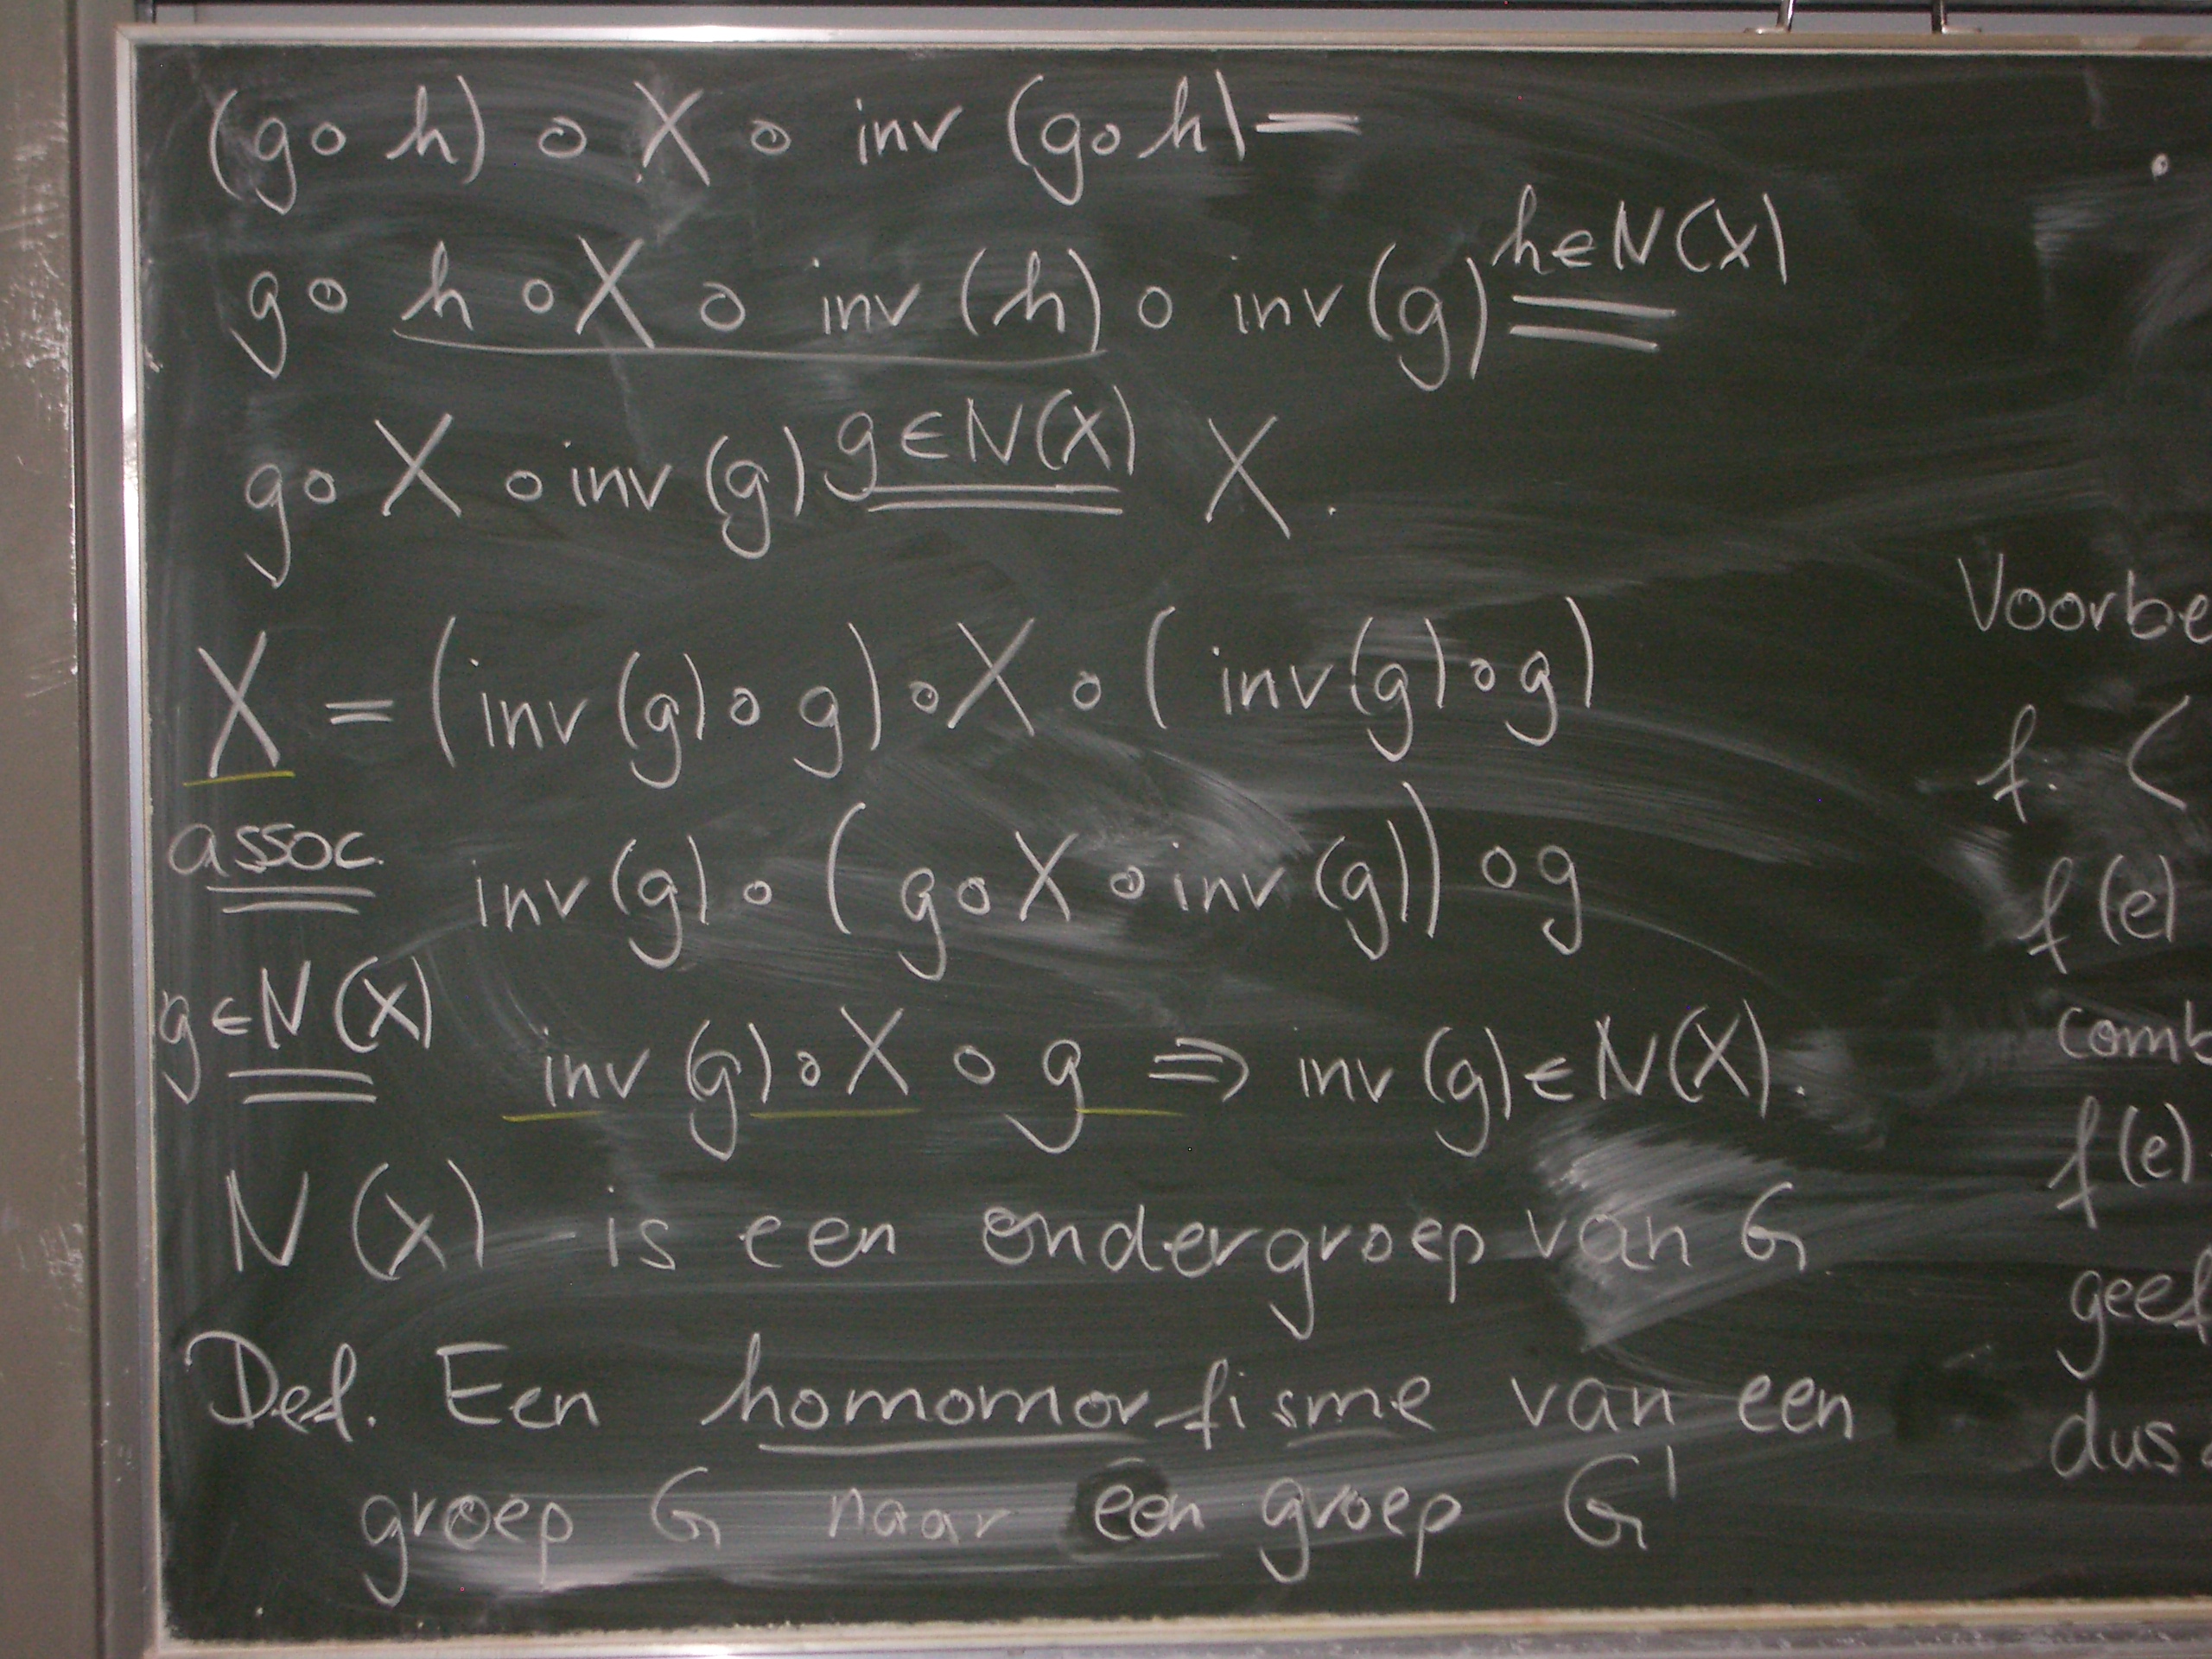 (g∘h) ∘ X ∘ inv (g∘h) =
g∘ h ∘X ∘ inv (h) ∘ inv (g) h∈N(X) =
g∘ X ∘ inv (g) g∈N(X) = X.
X = (inv (g)∘ g) ∘X ∘ ( inv(g)∘g)
assoc. = inv (g) ∘ ( g∘X ∘ inv (g)) ∘g
g∈N(X) = inv (g)∘X ∘ g ⇒ inv (g)∈N(X).
N (X) is een ondergroep van G
Def. Een homomorfisme van een
groep G naar een groep G'
Voorbe
f: (
f(e)
comb
f(e)
geef
dus